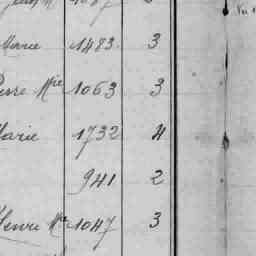 Marie 1483. 3
Pierre Mie 1063 3
Marie 1732 4
941 2
Henri Me 1047 3